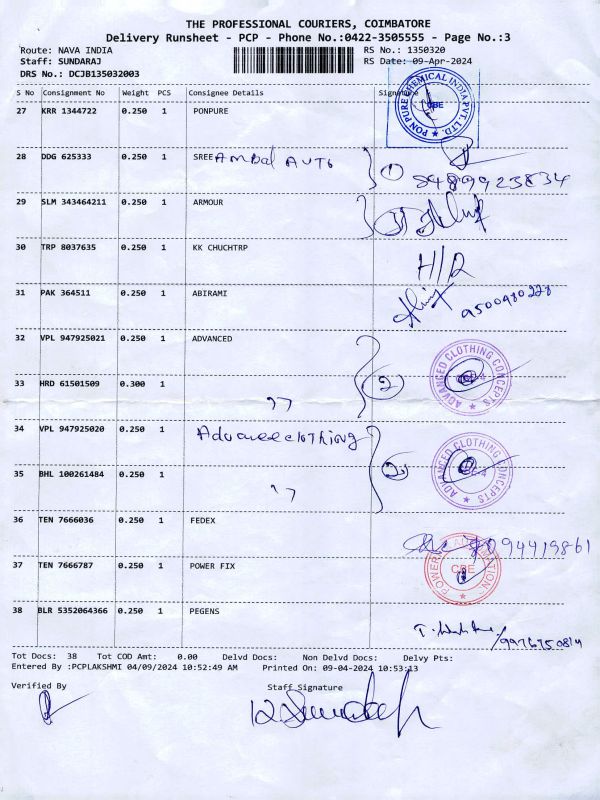 THE PROFESSIONAL COURIERS, COIMBATORE
Delivery Runsheet - PCP - Phone No.:0422-3505555 - Page No.:3
Route: NAVA INDIA RS No.: 1350320
Staff: SUNDARAJ RS Date: 09-Apr-2024
DRS No.: DCJB135032003
S No Consignment No Weight PCS Consignee Details Signature
27 KRR 1344722 0.250 1 PONPURE
PON PURE CHEMICAL INDIA PVT. LTD. CBE
28 DDG 625333 0.250 1 SREE Ambal AUTO 1
8489923834
29 SLM 343464211 0.250 1 ARMOUR
30 TRP 8037635 0.250 1 KK CHUCHTRP
31 PAK 364511 0.250 1 ABIRAMI 9500980228
32 VPL 947925021 0.250 1 ADVANCED
33 HRD 61501509 0.300 1 2 ADVANCED CLOTHING CONCEPTS
34 VPL 947925020 0.250 1
35 BHL 100261484 0.250 1 2 ADVANCED CLOTHING CONCEPTS
36 TEN 7666036 0.250 1 FEDEX 9094419861
37 TEN 7666787 0.250 1 POWER FIX CBE
38 BLR 5352064366 0.250 1 PEGENS
Tot Docs: 38 Tot COD Amt: 0.00 Delvd Docs: Non Delvd Docs: Delvy Pts:
Entered By :PCPLAKSHMI 04/09/2024 10:52:49 AM Printed On: 09-04-2024 10:53:13
Verified By Staff Signature